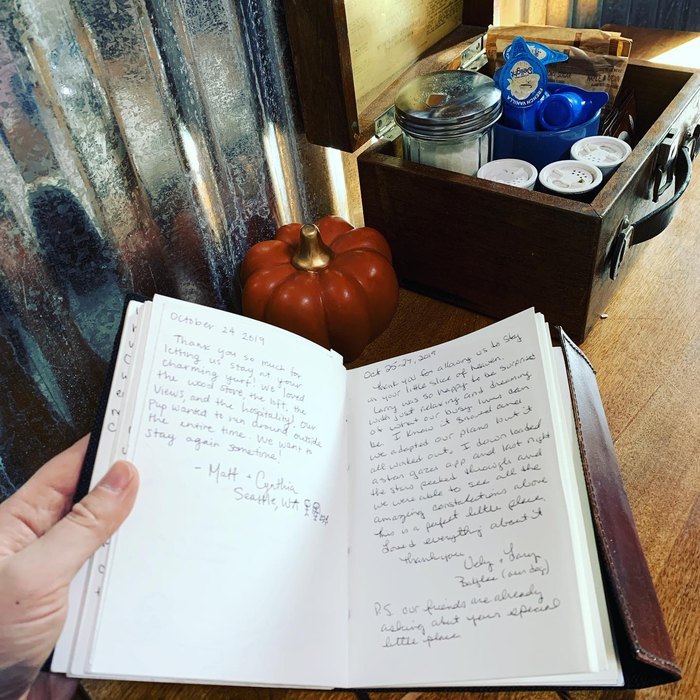 October 24 2019
Thank you so much for
letting us stay at your
charming yurt! We loved
the wood stove, the loft, the
views, and the hospitality! Our
pup wanted to run around outside
the entire time. We want to
stay again sometime!
- Matt + Cynthia
Seattle, WA
Oct 25-27, 2019
Thank you for allowing us to stay
in your little slice of heaven.
Larry was so happy to be surprised
with just relaxing and dreaming
of what our busy lives can
be. I know it snowed and
we adapted our plans but it
all worked out. I down loaded
a star gazer app and last night
the stars peeked through and
we were able to see all the
amazing constellations above
This is a perfect little place
Loved everything about it
Thank you
+ Larry
(our dog)
P.S. our friends are already
asking about your special
little place
FRENCH VANILLA